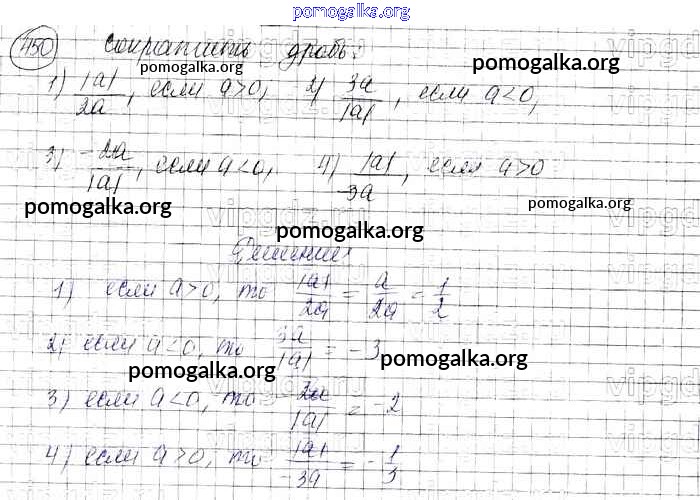 pomogalka.org
450 Сократить дробь:
pomogalka.org pomogalka.org
1) |a|/2a, если a>0, 2) 3a/|a|, если a<0,
3) -2a/|a|, если a<0, 4) |a|/-3a, если a>0
pomogalka.org pomogalka.org pomogalka.org
vipgdz.ru
Решение
1) если a>0, то |a|/2a = a/2a = 1/2
2) если a<0, то 3a/|a| = -3
pomogalka.org pomogalka.org
3) если a<0, то -2a/|a| = -2
4) если a>0, то |a|/-3a = -1/3